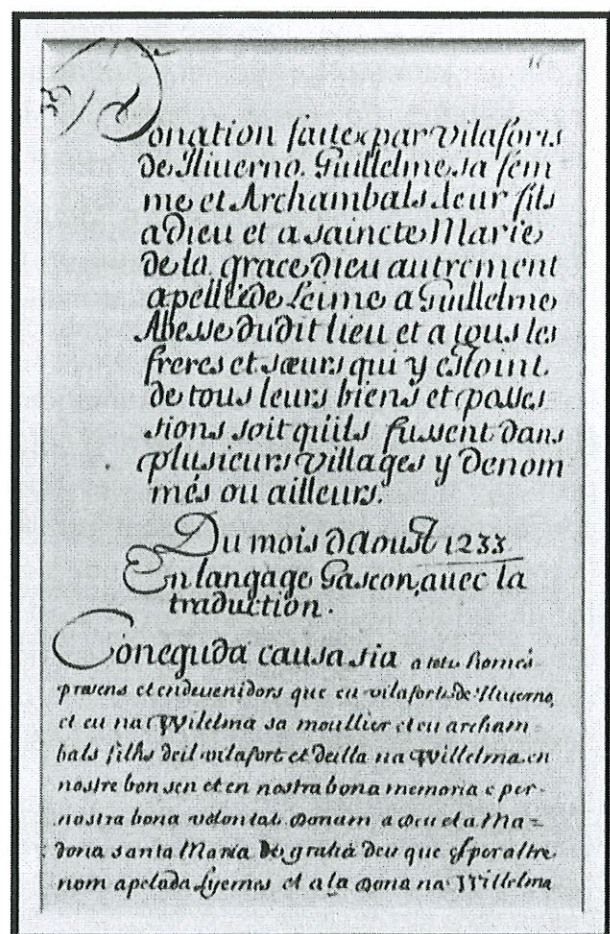 16
Donation faite par vilafortis
de Niuerno. Guillelme sa fem
me et Archambals leur fils
a Dieu et a saincte Marie
de la grace Dieu autrement
apellée de Leime a Guillelme
Abesse dudit lieu et a tous les
freres et sœurs qui y estoint
de tous leurs biens et posses
sions soit qu'ils fussent dans
plusieurs villages y denom
més ou ailleurs.
Du mois d'Aoust 1233
En langage Gascon, auec la
traduction.
Coneguda causa sia a totz homes
presens et endeuenidors que eu vilafortis de Niuerno,
et eu na Wilelma sa moullier et eu archam
bals filhs deil vilafort et deilla na Willelma en
nostre bon sen et en nostra bona memoria e per
nostra bona volontat. Donam a Deu et a Ma=
dona santa Maria De gratia deu que es per altre
nom apelada Lyemes et a la Dona na Willelma